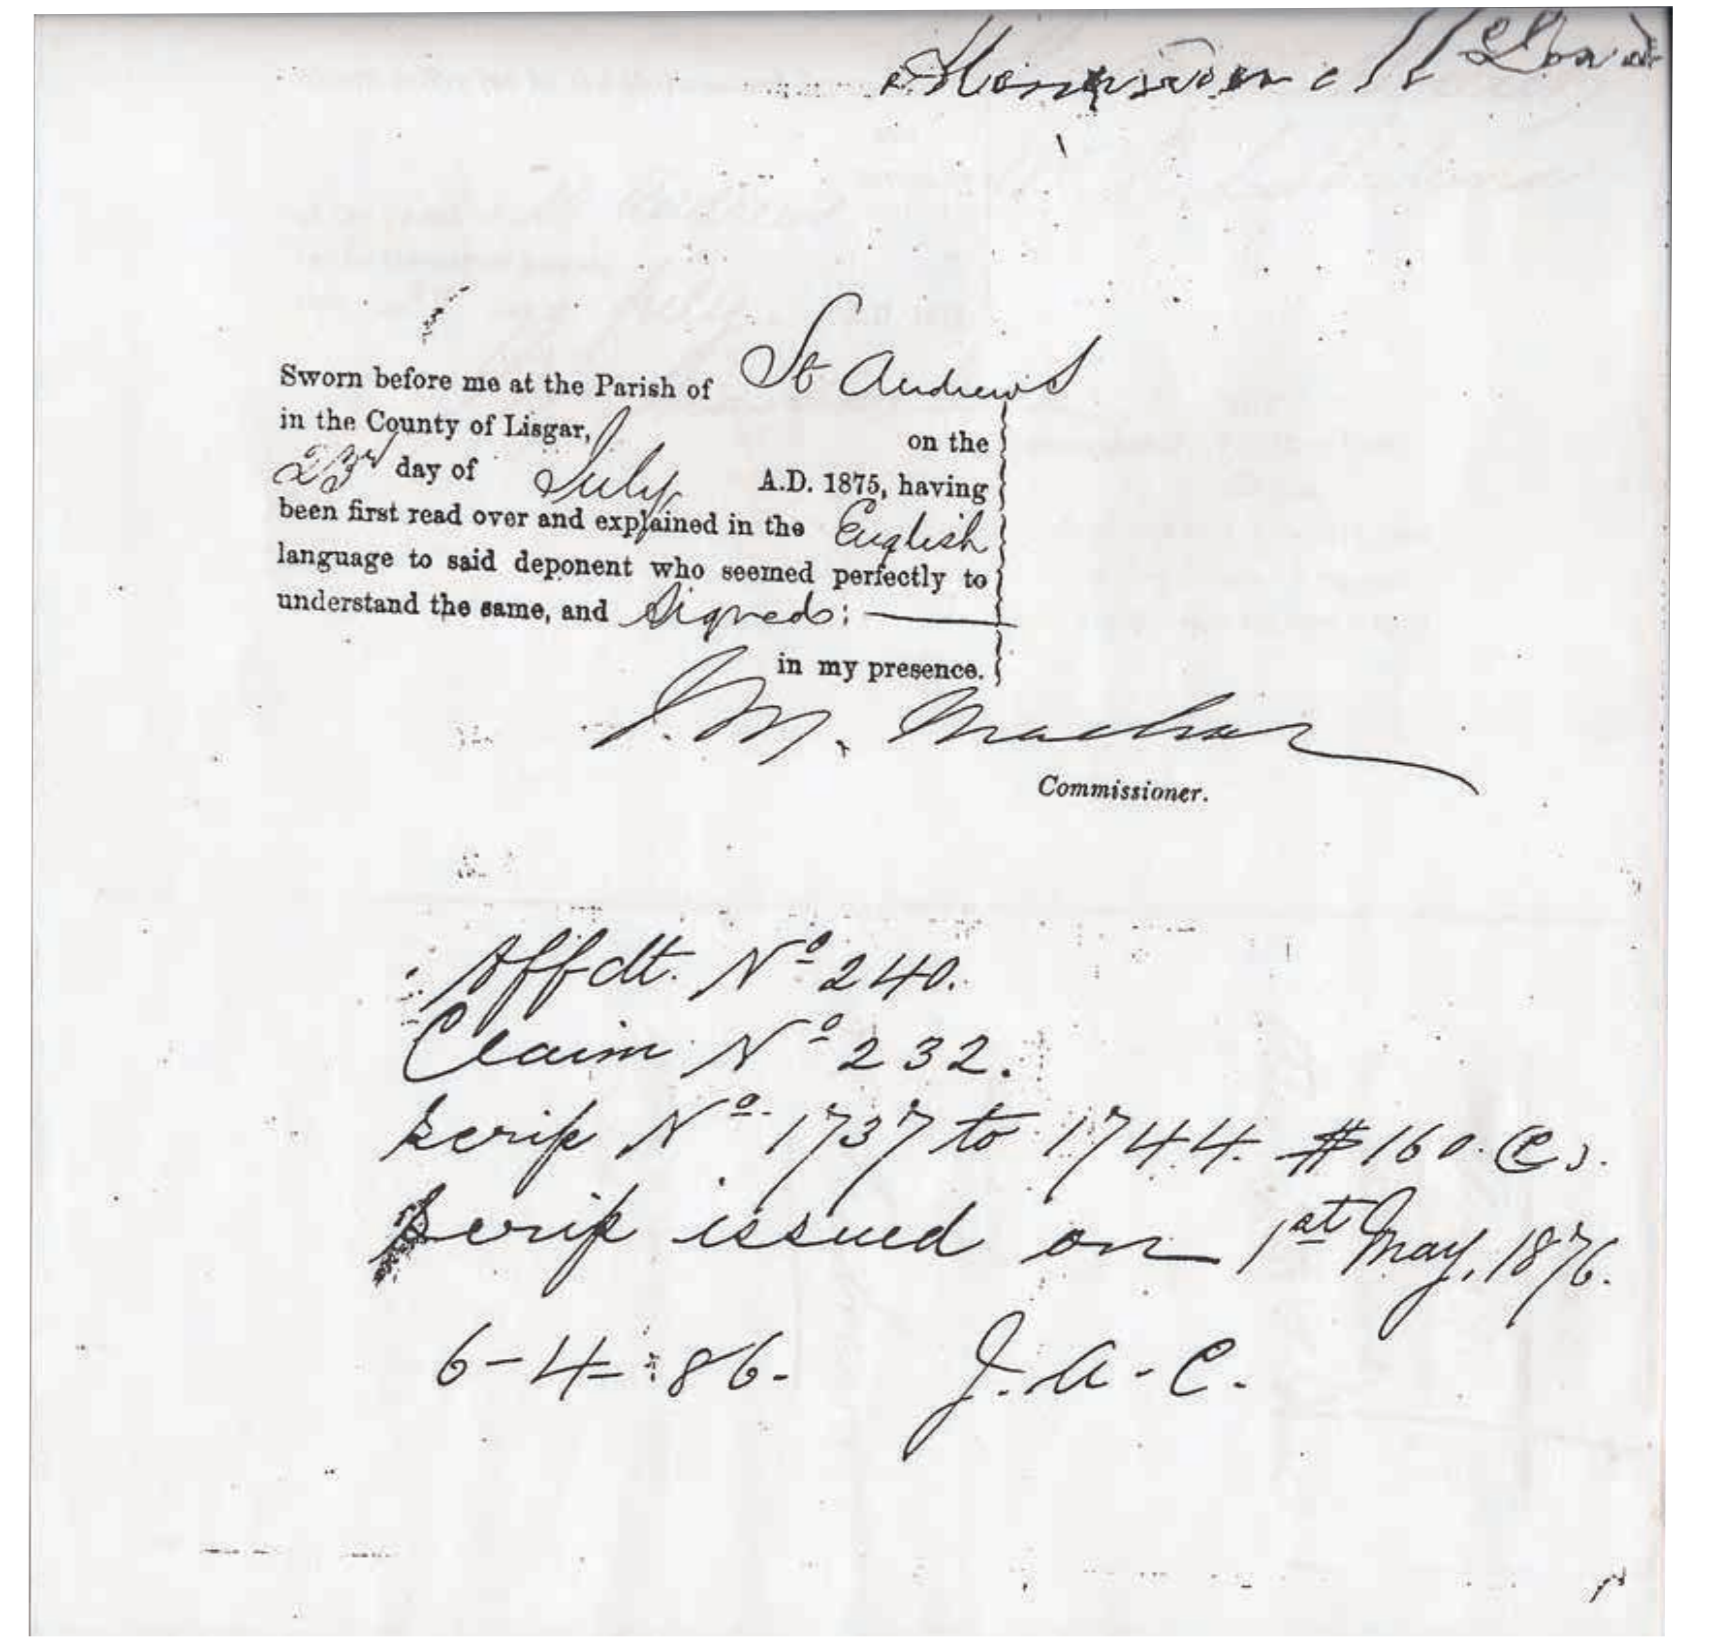 Sworn before me at the Parish of St Andrews
in the County of Lisgar, on the
23rd day of July A.D. 1875, having
been first read over and explained in the English
language to said deponent who seemed perfectly to
understand the same, and Signed:
in my presence.
J. M. Machar
Commissioner.
Affdt. No 240.
Claim No 232.
Scrip No. 1737 to 1744. $160.
Scrip issued on 1st May, 1876.
6-4-86. J. A. C.